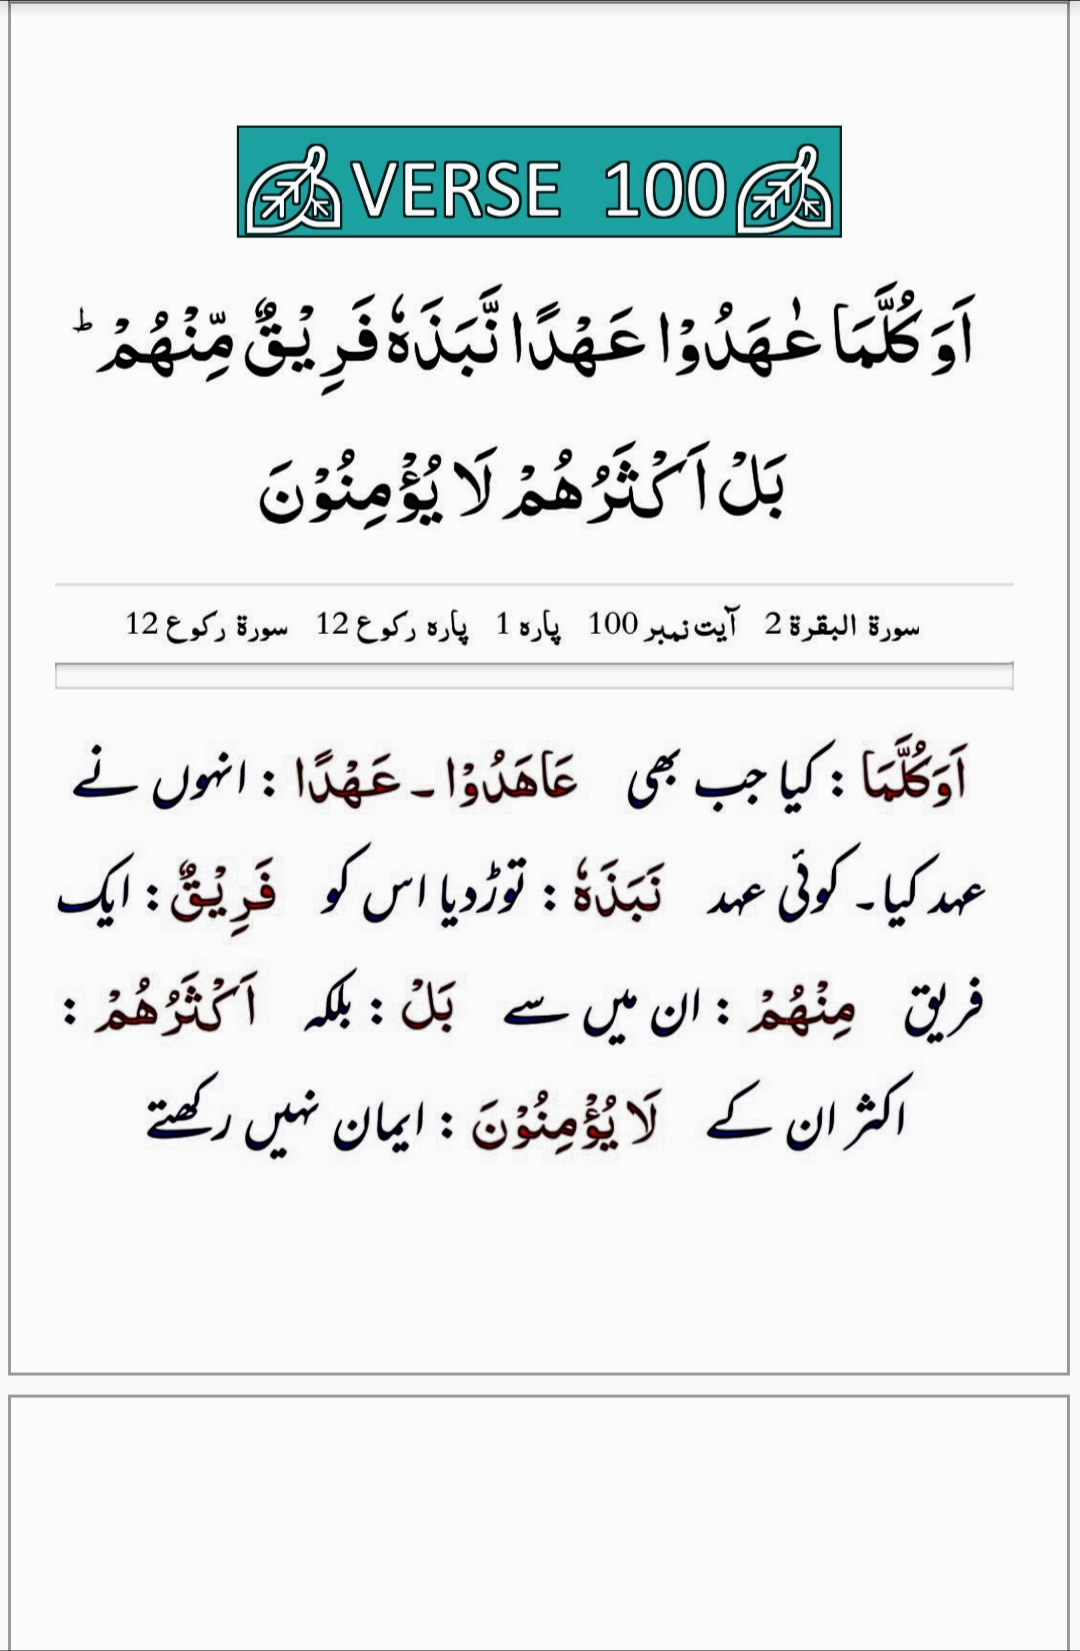 VERSE 100
اَوَكُلَّمَا عٰهَدُوْا عَهْدًا نَّبَذَهٗ فَرِيْقٌ مِّنْهُمْ ؕ
بَلْ اَكْثَرُهُمْ لَا يُؤْمِنُوْنَ
سورۃ البقرۃ 2 آیت نمبر 100 پارہ 1 پارہ رکوع 12 سورۃ رکوع 12
اَوَكُلَّمَا : کیا جب بھی عَاهَدُوْا ۔ عَهْدًا : انہوں نے
عہد کیا۔ کوئی عہد نَبَذَهٗ : توڑدیا اس کو فَرِيْقٌ : ایک
فریق مِنْهُمْ : ان میں سے بَلْ : بلکہ اَكْثَرُهُمْ :
اکثر ان کے لَا يُؤْمِنُوْنَ : ایمان نہیں رکھتے